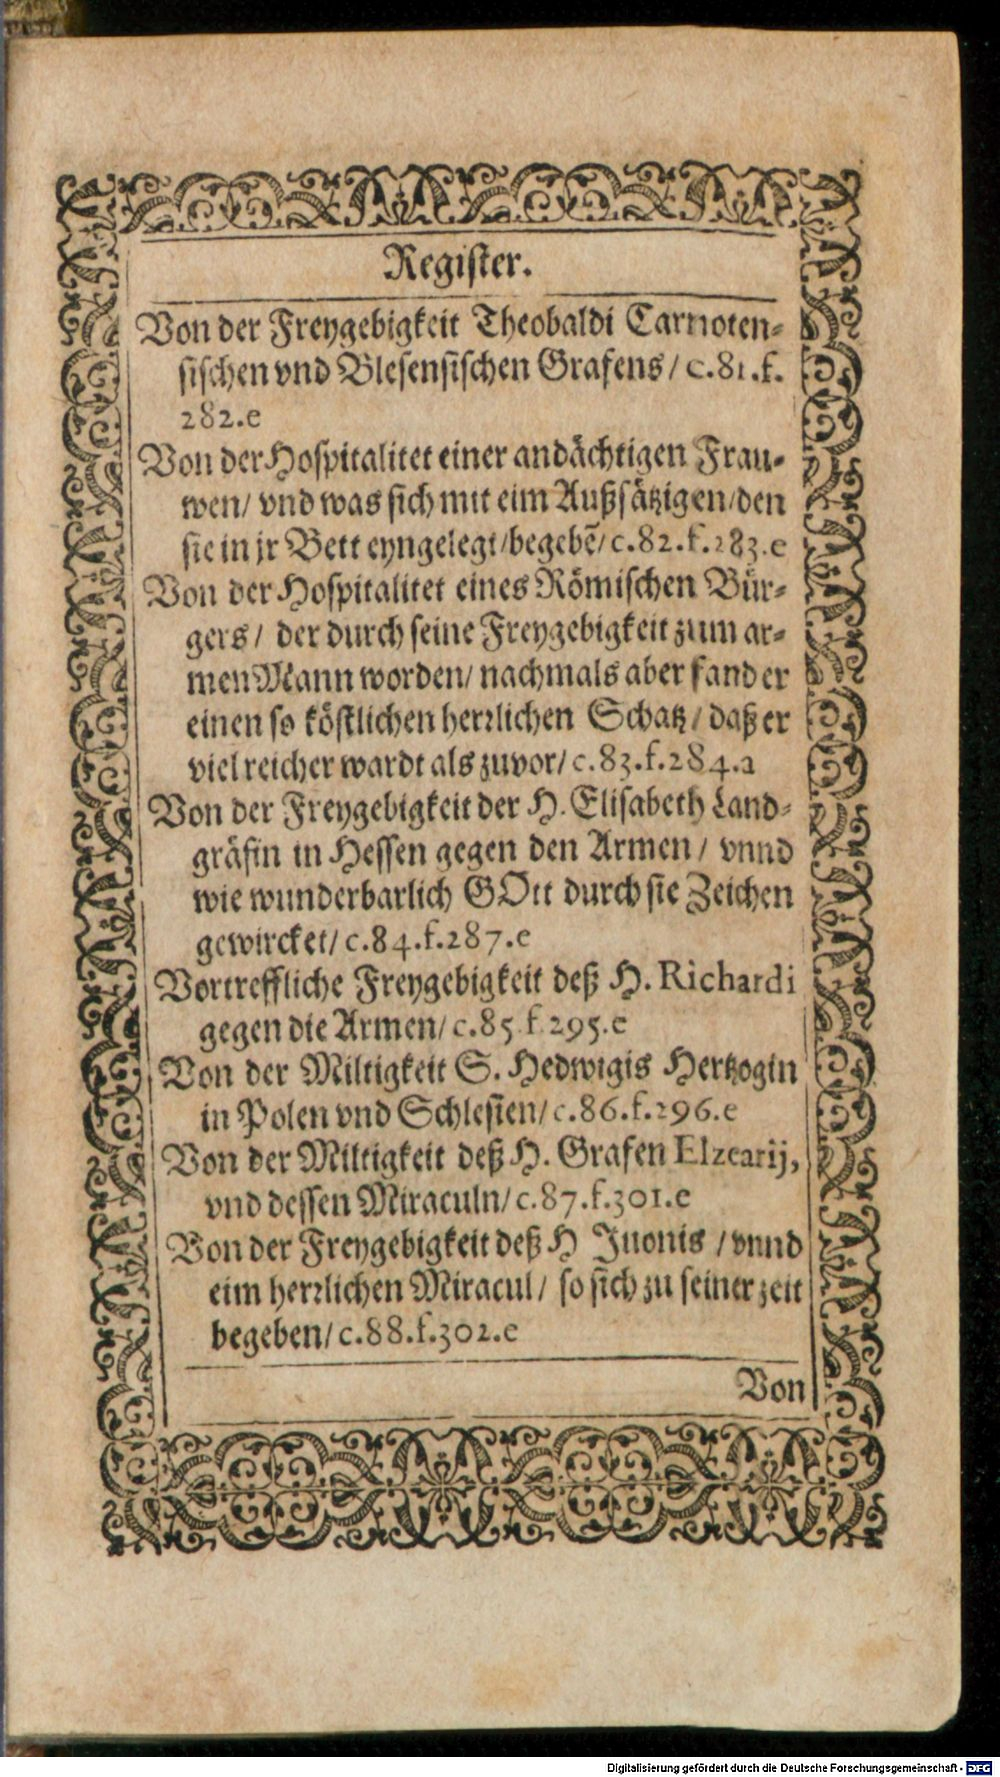 Register.
Von der Freygebigkeit Theobaldi Carnoten-
sischen vnd Blesensischen Grafens / c.81.f.
282.e
Von der Hospitalitet einer andächtigen Frau-
wen / vnd was sich mit eim Außsätzigen / den
sie in jr Bett eyngelegt / begebẽ / c.82.f.283.e
Von der Hospitalitet eines Römischen Bür-
gers / der durch seine Freygebigkeit zum ar-
men Mann worden / nachmals aber fand er
einen so köstlichen herrlichen Schatz / daß er
viel reicher wardt als zuvor / c.83.f.284.a
Von der Freygebigkeit der H. Elisabeth Land-
gräfin in Hessen gegen den Armen / vnnd
wie wunderbarlich GOtt durch sie Zeichen
gewircket / c.84.f.287.e
Vortreffliche Freygebigkeit deß H. Richardi
gegen die Armen / c.85.f.295.e
Von der Miltigkeit S. Hedwigis Hertzogin
in Polen vnd Schlesien / c.86.f.296.e
Von der Miltigkeit deß H. Grafen Elzearij,
vnd dessen Miraculn / c.87.f.301.e
Von der Freygebigkeit deß H Juonis / vnnd
eim herrlichen Miracul / so sich zu seiner zeit
begeben / c.88.f.302.e
Von
Digitalisierung gefördert durch die Deutsche Forschungsgemeinschaft - DFG